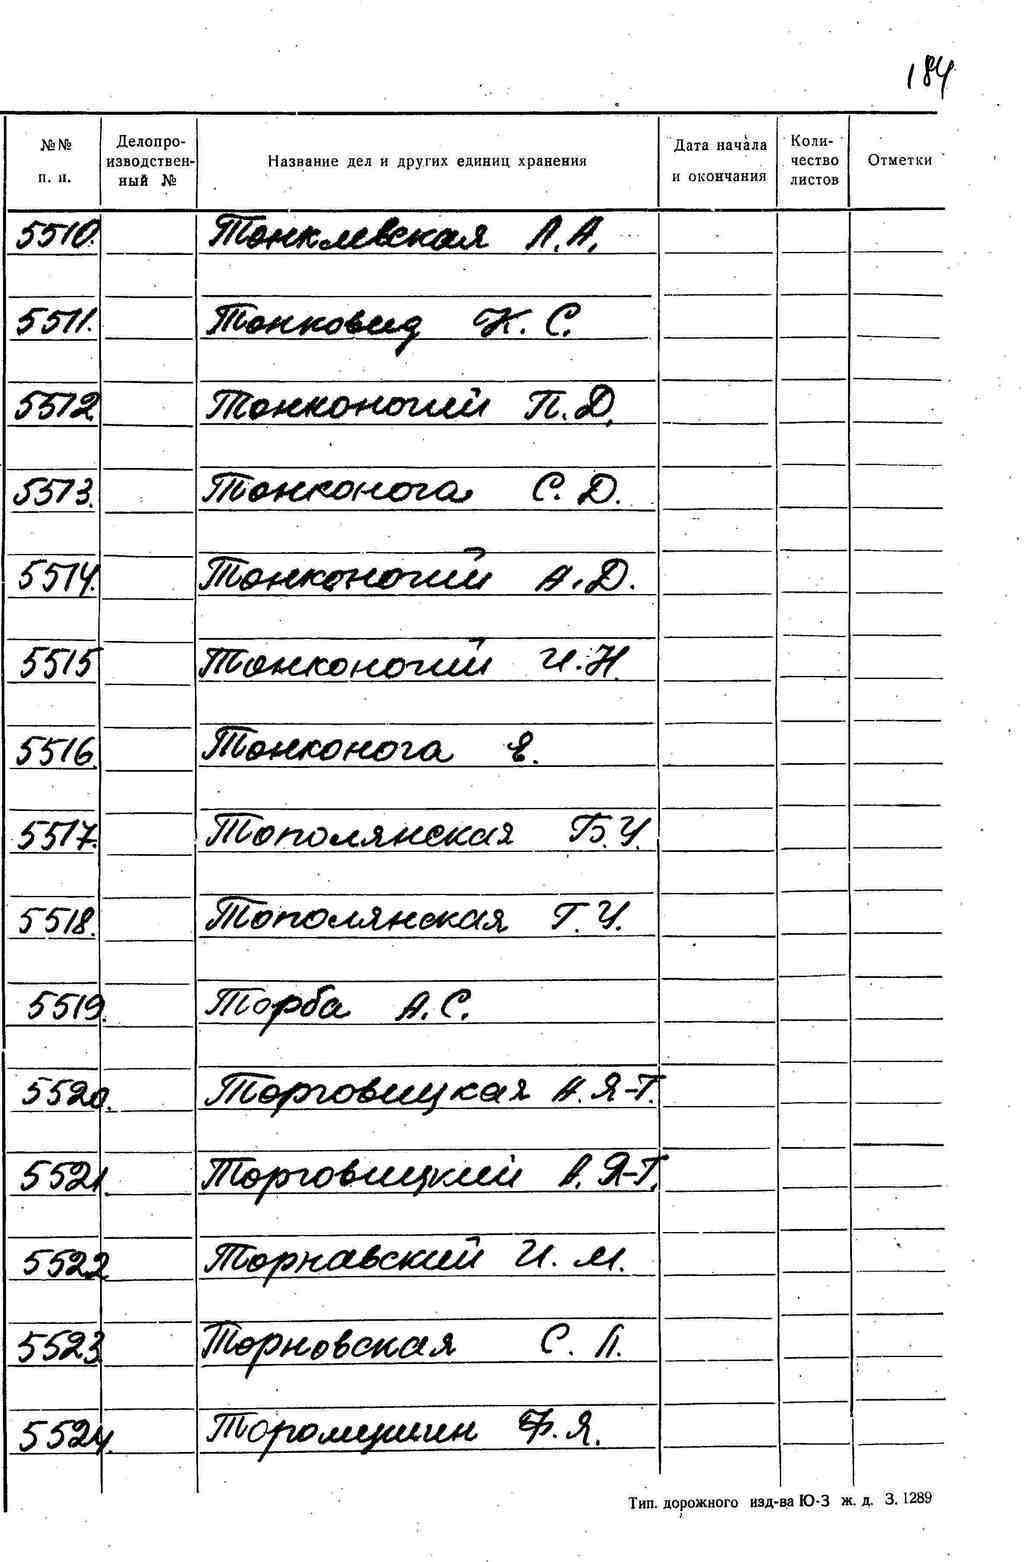 184
№№ п. п.
Делопроизводственный №
Название дел и других единиц хранения
Дата начала и окончания
Количество листов
Отметки
5510. Тонклевская Л.А.
5511. Тонковид К. С.
5512 Тонконогий П.Д.
5513. Тонконога С. Д.
5514. Тонконогий А.Д.
5515 Тонконогий И.Н.
5516. Тонконога Е.
5517. Тополянская Б.У.
5518. Тополянская Г.У.
5519. Торба А.С.
5520. Торговицкая А.Я-Г.
5521. Торговицкий А.Я-Г.
5522 Торнавский И.М.
5523 Торновская С. П.
5524. Торомушин Ф.Я.
Тип. дорожного изд-ва Ю-З ж. д. З. 1289